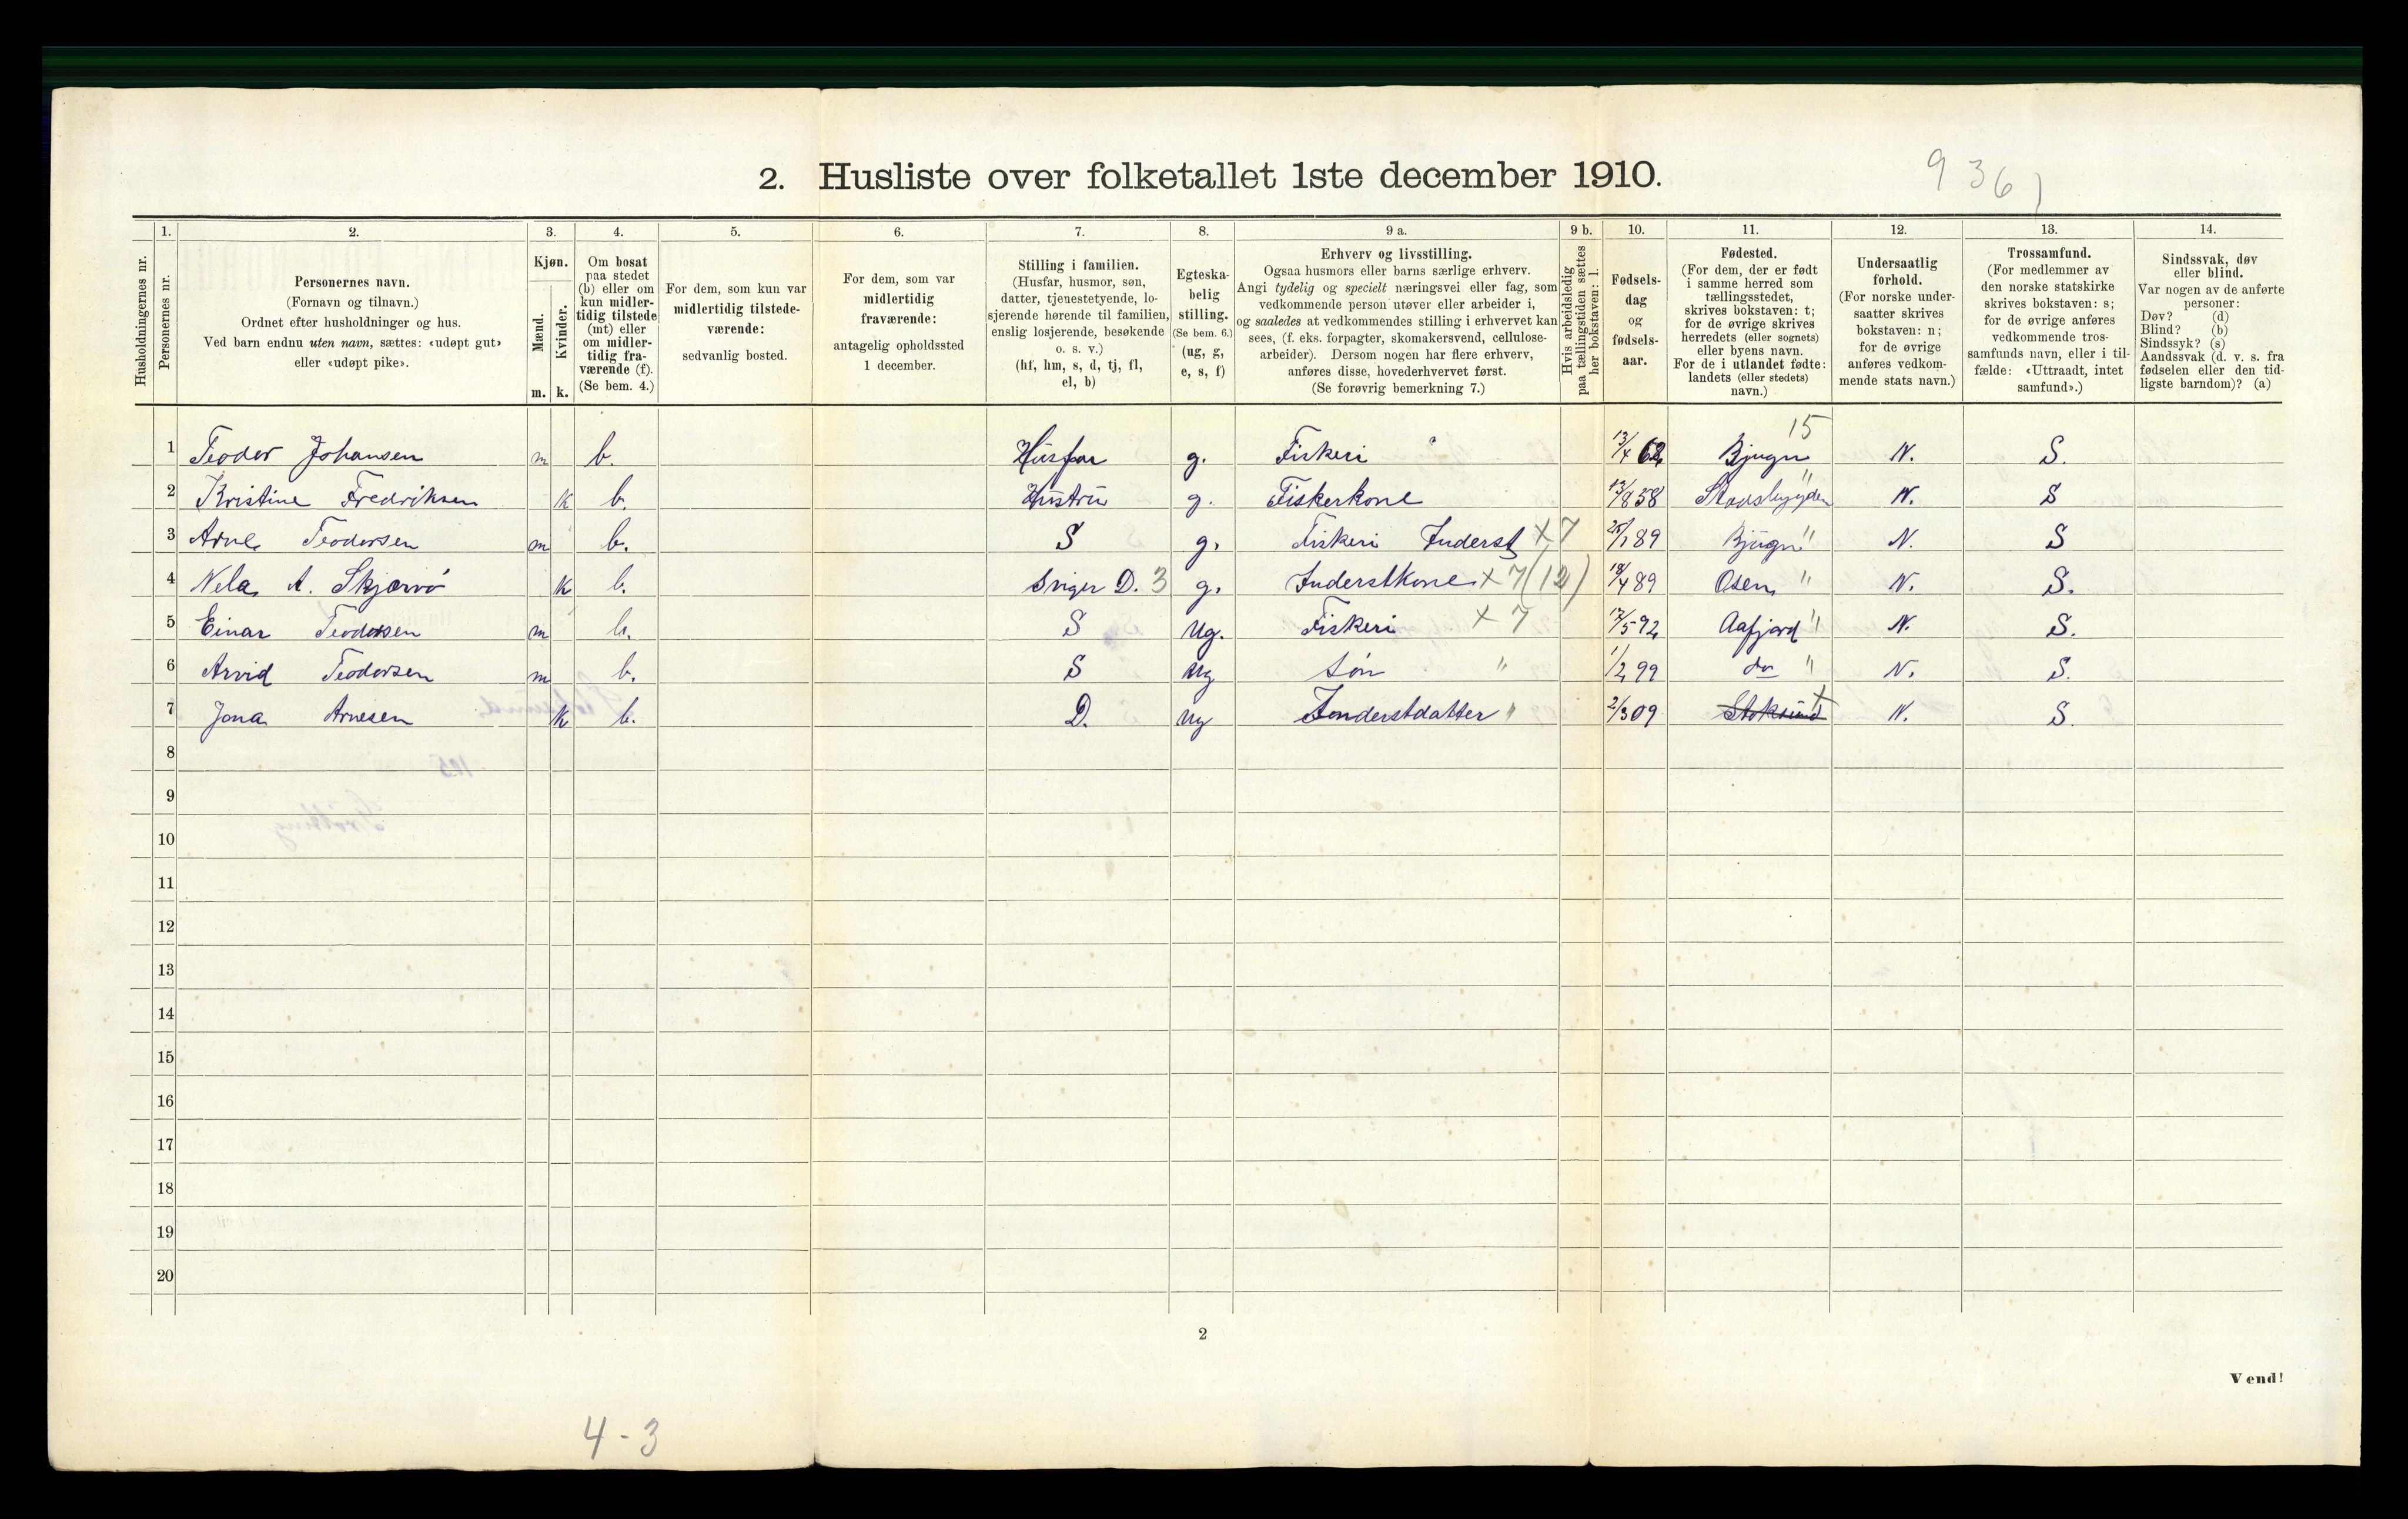 9 3 6 )
2. Husliste over folketallet 1ste december 1910.
1. 2. 3. 4. 5. 6. 7. 8. 9 a. 9 b. 10. 11. 12. 13. 14.
Husholdningernes nr.
Personernes nr.
Personernes navn.
(Fornavn og tilnavn.)
Ordnet efter husholdninger og hus.
Ved barn endnu uten navn, sættes: «udøpt gut»
eller «udøpt pike».
Kjøn.
Mænd.
Kvinder.
m. k.
Om bosat
paa stedet
(b) eller om
kun midler-
tidig tilstede
(mt) eller
om midler-
tidig fra-
værende (f).
(Se bem. 4.)
For dem, som kun var
midlertidig tilstede-
værende:
sedvanlig bosted.
For dem, som var
midlertidig
fraværende:
antagelig opholdssted
1 december.
Stilling i familien.
(Husfar, husmor, søn,
datter, tjenestetyende, lo-
sjerende hørende til familien,
enslig losjerende, besøkende
o. s. v.)
(hf, hm, s, d, tj, fl,
el, b)
Egteska-
belig
stilling.
(Se bem. 6.)
(ug, g,
e, s, f)
Erhverv og livsstilling.
Ogsaa husmors eller barns særlige erhverv.
Angi tydelig og specielt næringsvei eller fag, som
vedkommende person utøver eller arbeider i,
og saaledes at vedkommendes stilling i erhvervet kan
sees, (f. eks. forpagter, skomakersvend, cellulose-
arbeider). Dersom nogen har flere erhverv,
anføres disse, hovederhvervet først.
(Se forøvrig bemerkning 7.)
Hvis arbeidsledig
paa tællingstiden sættes
her bokstaven: l.
Fødsels-
dag
og
fødsels-
aar.
Fødested.
(For dem, der er født
i samme herred som
tællingsstedet,
skrives bokstaven: t;
for de øvrige skrives
herredets (eller sognets)
eller byens navn.
For de i utlandet fødte:
landets (eller stedets)
navn.)
Undersaatlig
forhold.
(For norske under-
saatter skrives
bokstaven: n;
for de øvrige
anføres vedkom-
mende stats navn.)
Trossamfund.
(For medlemmer av
den norske statskirke
skrives bokstaven: s;
for de øvrige anføres
vedkommende tros-
samfunds navn, eller i til-
fælde: «Uttraadt, intet
samfund».)
Sindssvak, døv
eller blind.
Var nogen av de anførte
personer:
Døv? (d)
Blind? (b)
Sindssyk? (s)
Aandssvak (d. v. s. fra
fødselen eller den tid-
ligste barndom)? (a)
15
1 Teodor Johansen m b. Husfar g. Fiskeri 13/4 62 Bjugn N. S.
2 Kristine Fredriksen k b. Hustru g. Fiskerkone 12/8 58 Stadsbygden " N. S
3 Arne Teodorsen m b. S g. Fiskeri Inderst x 7 25/1 89 Bjugn " N. S
4 Nela A. Skjærvö k b. Sviger D. 3 g. Inderstkone x 7 (12) 18/4 89 Osen " N. S.
5 Einar Teodorsen m b. S Ug. Fiskeri x 7 17/5 92 Aafjord " N. S.
6 Arvid Teodorsen m b. S Ug Sön " 1/2 99 do " N. S.
7 Jona Arnesen k b. D. Ug Inderstdatter " 2/3 09 Stoksund x N. S.
8
9
10
11
12
13
14
15
16
17
18
19
20
2
Vend!
4 - 3